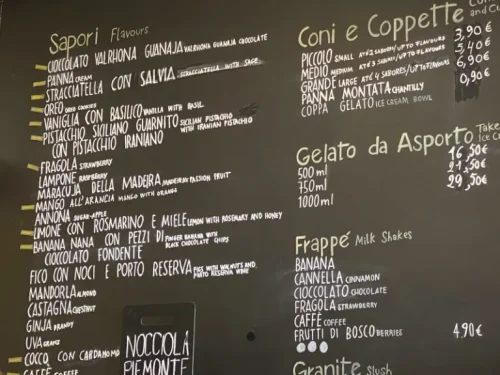 Sapori Flavours
CIOCCOLATO VALRHONA GUANAJA VALRHONA GUANAJA CHOCOLATE
PANNA CREAM
STRACCIATELLA CON SALVIA STRACCIATELLA WITH SAGE
OREO OREO COOKIES
VANIGLIA CON BASILICO VANILLA WITH BASIL
PISTACCHIO SICILIANO GUARNITO SICILIAN PISTACHIO
CON PISTACCHIO IRANIANO WITH IRANIAN PISTACHIO
FRAGOLA STRAWBERRY
LAMPONE RASPBERRY
MARACUJA DELLA MADEIRA MADEIRAN PASSION FRUIT
MANGO ALL'ARANCIA MANGO WITH ORANGE
ANNONA SUGAR-APPLE
LIMONE CON ROSMARINO E MIELE LEMON WITH ROSEMARY AND HONEY
BANANA NANA CON PEZZI DI FINGER BANANA WITH
CIOCCOLATO FONDENTE BLACK CHOCOLATE CHIPS
FICO CON NOCI E PORTO RESERVA FIGS WITH WALNUTS AND
PORTO RESERVA WINE
MANDORLA ALMOND
CASTAGNA CHESTNUT
GINJA BRANDY
UVA GRAPE
COCCO CON CARDAMOMO
CAFFÈ COFFEE
NOCCIOLA
PIEMONTE
Coni e Coppette
PICCOLO SMALL ATÉ 2 SABORES/UP TO FLAVOURS 3,90€
MEDIO MEDIUM ATÉ 3 SABORES/UP TO FLAVOURS 5,40€
GRANDE LARGE ATÉ 4 SABORES/UP TO FLAVOURS 6,90€
PANNA MONTATA CHANTILLY 0,90€
COPPA GELATO ICE CREAM BOWL
Gelato da Asporto Take
500 ml 16,50€
750 ml 21,50€
1000 ml 29,50€
Frappé Milk Shakes
BANANA
CANNELLA CINNAMON
CIOCCOLATO CHOCOLATE
FRAGOLA STRAWBERRY
CAFFÈ COFFEE
FRUTTI DI BOSCO BERRIES 4,90€
Granite Slush